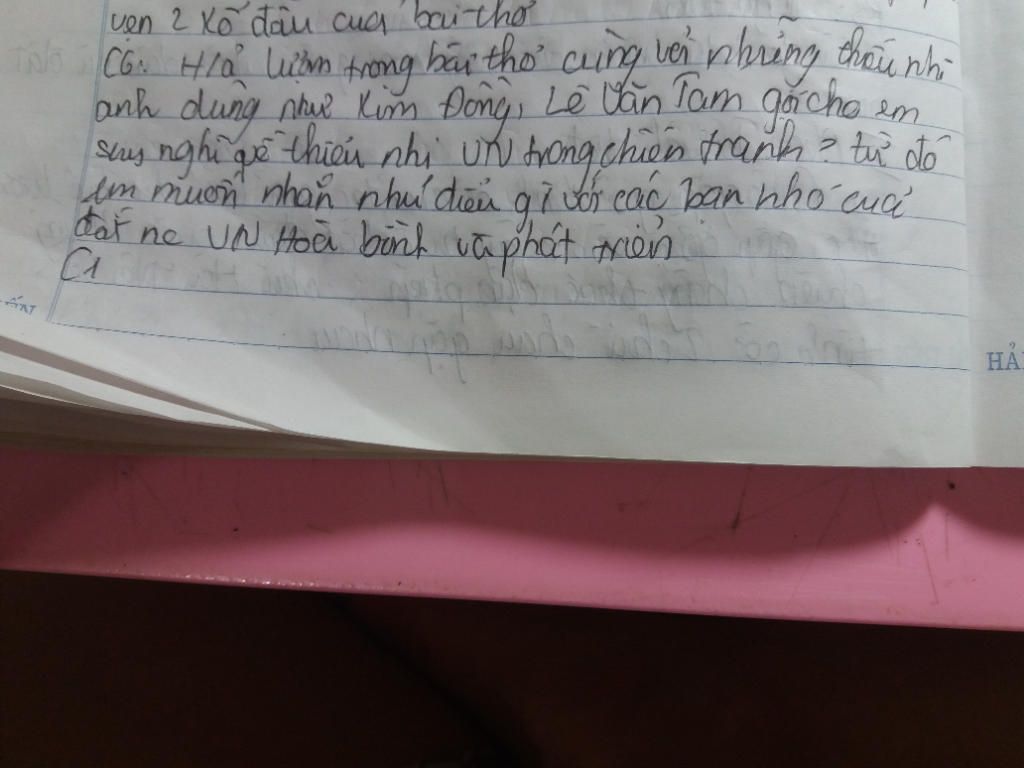 vẹn 2 Khổ đầu của bài thơ
C6: H/ả lượm trong bài thơ cùng với những thiếu nhi
anh dũng như Kim Đồng, Lê Văn Tám gợi cho em
suy nghĩ gì về thiếu nhi VN trong chiến tranh? từ đó
em muốn nhắn nhủ điều gì với các bạn nhỏ của
đất nc VN Hoà bình và phát triển
C1
HẢI